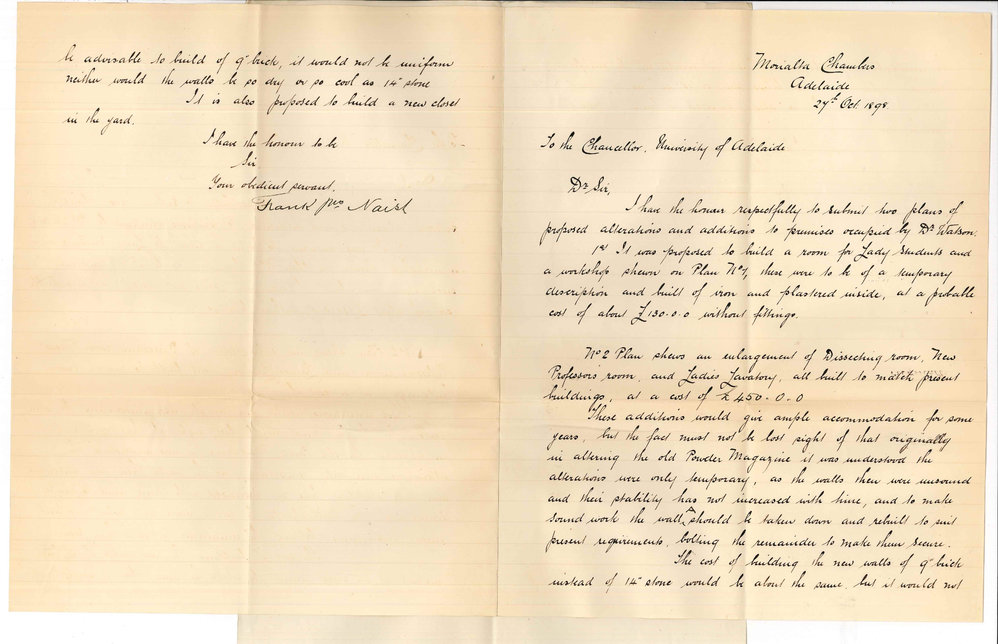 Morialta Chambers
Adelaide
27th Oct. 1898
To the Chancellor, University of Adelaide
Dr Sir,
I have the honour respectfully to submit two plans of
proposed alterations and additions to premises occupied by Dr Watson.
1st It was proposed to build a room for Lady Students and
a workshop shewn on Plan No 1, these were to be of a temporary
description and built of iron and plastered inside, at a probable
cost of about £130.0.0 without fittings.
No 2 Plan shews an enlargement of Dissecting room, New
Professors room, and Ladies Lavatory, all built to match present
buildings, at a cost of £450.0.0
These additions would give ample accommodation for some
years, but the fact must not be lost sight of that originally
in altering the old Powder Magazine it was understood the
alterations were only temporary, as the walls then were unsound
and their stability has not increased with time, and to make
sound work the wall A should be taken down and rebuilt to suit
present requirements, bolting the remainder to make them secure.
The cost of building the new walls of 9" brick
instead of 14" stone would be about the same but it would not
be advisable to build of 9" brick, it would not be uniform
neither would the walls be so dry or so cool as 14" stone
It is also proposed to build a new closet
in the yard.
I have the honour to be
Sir
Your obedient servant,
Frank Jno Naish